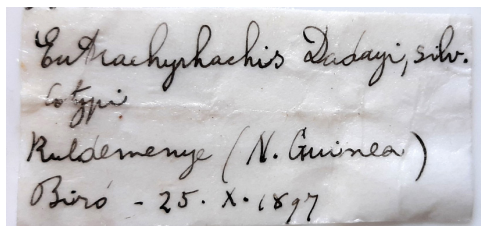 Eutrachyrhachis Dadayi, silv.
Cotypi
Ruldemenye (N. Guinea)
Biró - 25. X. 1897